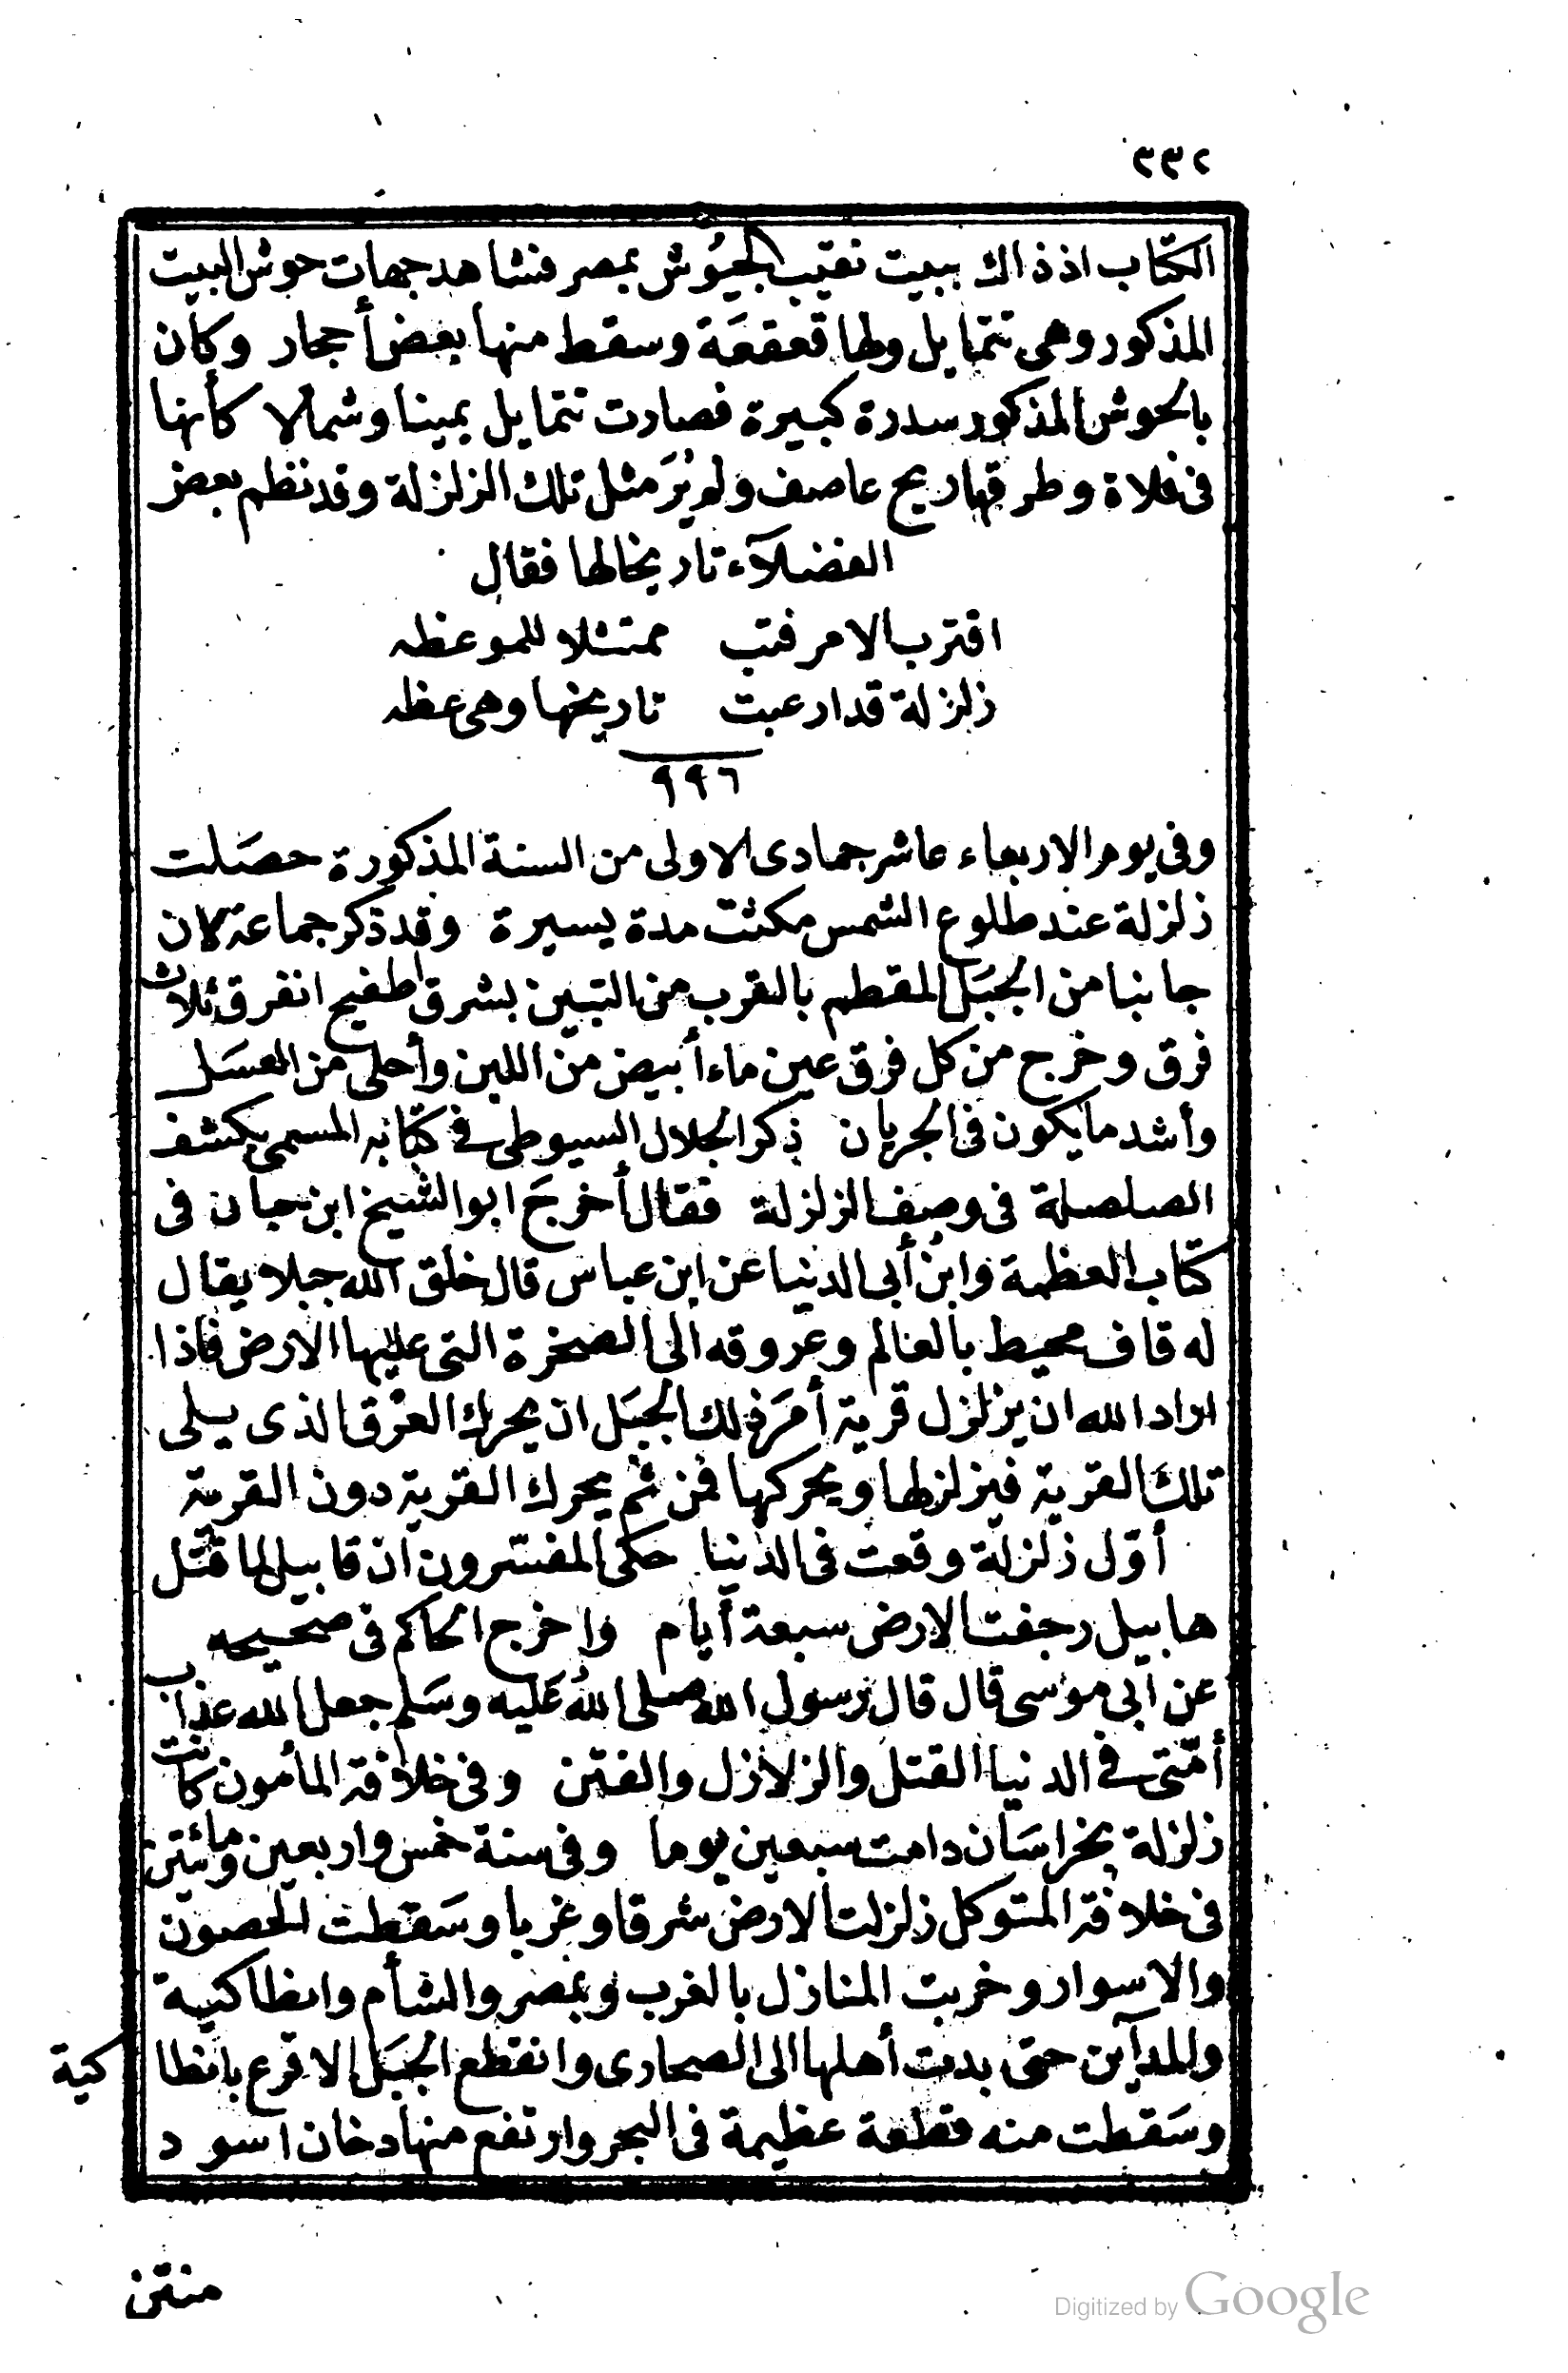 ٢٣٢
الكتاب اذ ذاك ببيت نقيب الجيُوش بمصر فنشاهد جهات حوش البيت
المذكور وهى تتمايل ولها قعقعَة وسقط منها بعض أحجار وكان
بالحوش المذكور سدرة كبيرة فصارت تتمايل يمينا وشمالا كأنها
فى فلاة وطرقها ريح عاصف ولم يُرَ مثل تلك الزلزلة وقد نظم بعض
الفضلآء تاريخا لها فقال
اقترب الامر فتب ممتثلا للموعظه
زلزلة قد ارعبت تاريخها وهى عظه
٩٩٦
وفى يوم الاربعاء عاشر جمادى الاولى من السنة المذكورة حصَلت
زلزلة عند طلوع الشمس مكثت مدة يسيرة وقد ذكر جماعة لان
جانبا من الجبَل المقطم بالقرب من التبين بشرق اطفيح انفرق ثلاث
فرق وخرج من كل فرق عين ماء أبيض من اللبن وأحلى من العسَل
وأشد ما يكون فى الجريان ذكر الجلال السيوطى فى كتابه المسمى بكشف
الصلصلة فى وصف الزلزلة فقال أخرجَ ابو الشيخ ابن حبان فى
كتاب العظمة وابن أبى الدنيا عن ابن عباس قال خلق الله جبلا يقال
له قاف محيط بالعالم وعروقه الى الصخرة التى عليها الارض فاذا
اراد الله ان يزلزل قرية أمَرَ ذلك الجبَل ان يحرك العرْق الذى يلى
تلكَ القرية فيزلزلها ويحركها فمن ثم يحرك القرية دون القرية
أوّل زلزلة وقعت فى الدنيا حكى المفسرون ان قابيل لما قتل
هابيل رجفت الارض سبعة أيام واخرج الحاكم فى صحيحه
عن ابى موسى قال قال رسول الله صلى اللهُ عَليه وسَلم جعل الله عذاب
أمّتى فى الدنيا القتل والزلازل والفتن وفى خلافة المأمون كانت
زلزلة بخراسَان دامت سبعين يوما وفى سنة خمس واربعين ومائتين
فى خلافة المتوكل زلزلت الارض شرقا وغربا وسَقطت الحصون
والاسوار وخربت المنازل بالغرب وبمصر والشأم وانطاكية
والمدآين حتى بدت أهلها الى الصحارى وانقطع الجبَل الاقرع بانطاكية
وسَقطت منه قطعة عظيمة فى البحر وارتفع منها دخان اسود
منتن
Digitized by Google